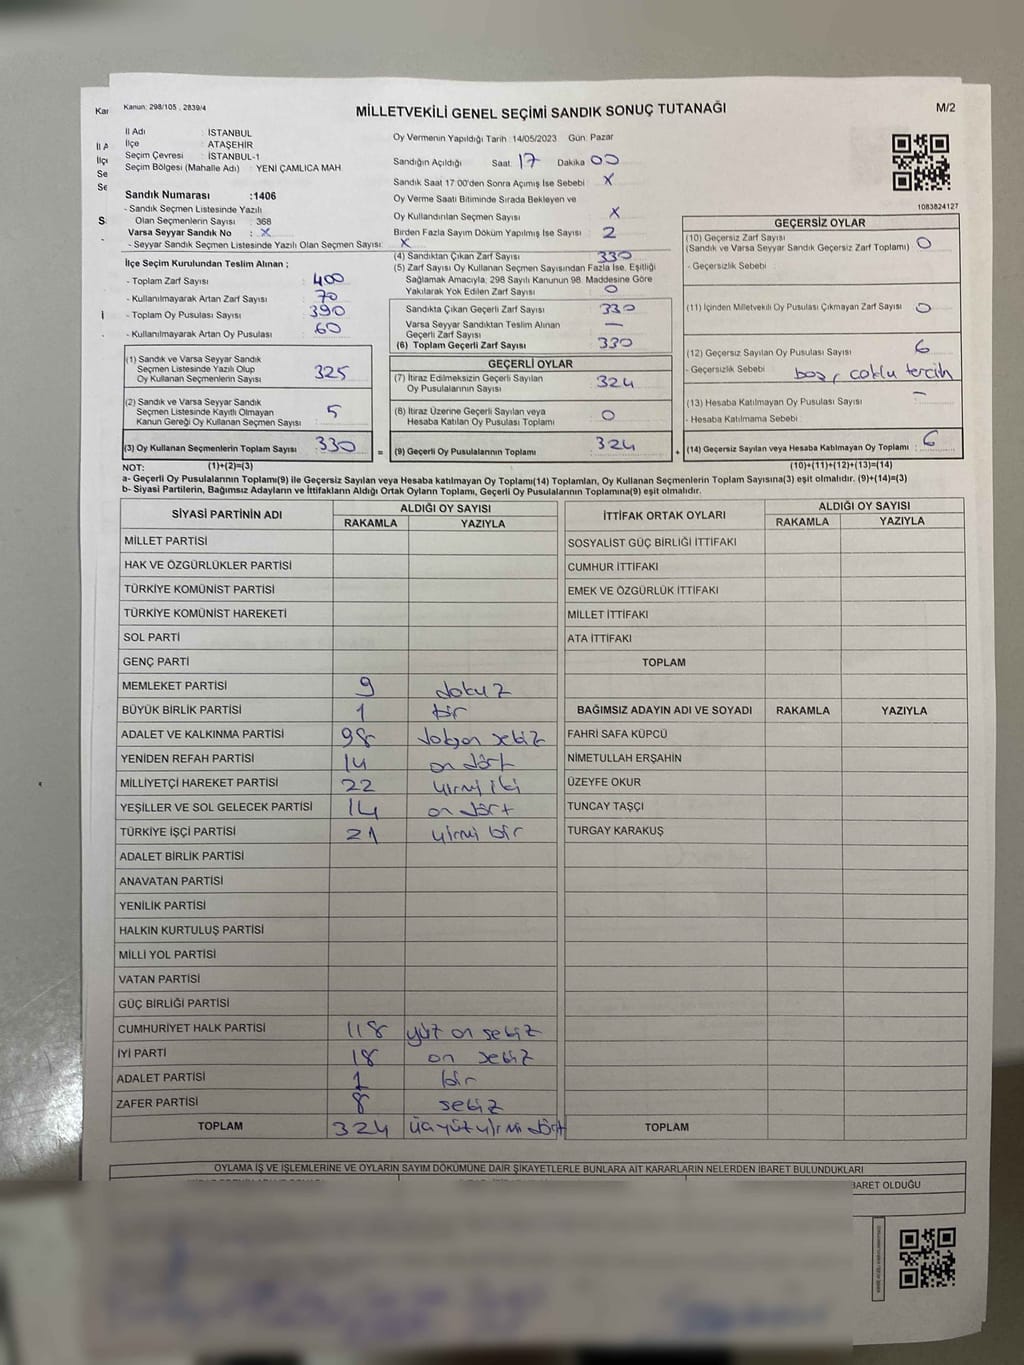 Kanun: 298/105 , 2839/4
MİLLETVEKİLİ GENEL SEÇİMİ SANDIK SONUÇ TUTANAĞI
M/2
İl Adı : İSTANBUL
İlçe : ATAŞEHİR
Seçim Çevresi : İSTANBUL-1
Seçim Bölgesi (Mahalle Adı) : YENİ ÇAMLICA MAH
Sandık Numarası :1406
- Sandık Seçmen Listesinde Yazılı
Olan Seçmenlerin Sayısı : 368
Varsa Seyyar Sandık No : X
- Seyyar Sandık Seçmen Listesinde Yazılı Olan Seçmen Sayısı: X
İlçe Seçim Kurulundan Teslim Alınan ;
- Toplam Zarf Sayısı : 400
- Kullanılmayarak Artan Zarf Sayısı : 70
- Toplam Oy Pusulası Sayısı : 390
- Kullanılmayarak Artan Oy Pusulası : 60
(1) Sandık ve Varsa Seyyar Sandık
Seçmen Listesinde Yazılı Olup
Oy Kullanan Seçmenlerin Sayısı : 325
(2) Sandık ve Varsa Seyyar Sandık
Seçmen Listesinde Kayıtlı Olmayan
Kanun Gereği Oy Kullanan Seçmen Sayısı : 5
(3) Oy Kullanan Seçmenlerin Toplam Sayısı : 330
Oy Vermenin Yapıldığı Tarih : 14/05/2023 Gün: Pazar
Sandığın Açıldığı Saat: 17 Dakika 00
Sandık Saat 17:00'den Sonra Açımış İse Sebebi : X
Oy Verme Saati Bitiminde Sırada Bekleyen ve
Oy Kullandırılan Seçmen Sayısı : X
Birden Fazla Sayım Döküm Yapılmış İse Sayısı : 2
(4) Sandıktan Çıkan Zarf Sayısı : 330
(5) Zarf Sayısı Oy Kullanan Seçmen Sayısından Fazla İse, Eşitliği
Sağlamak Amacıyla; 298 Sayılı Kanunun 98. Maddesine Göre
Yakılarak Yok Edilen Zarf Sayısı : 0
Sandıkta Çıkan Geçerli Zarf Sayısı : 330
Varsa Seyyar Sandıktan Teslim Alınan
Geçerli Zarf Sayısı : —
(6) Toplam Geçerli Zarf Sayısı : 330
GEÇERLİ OYLAR
(7) İtiraz Edilmeksizin Geçerli Sayılan
Oy Pusulalarının Sayısı : 324
(8) İtiraz Üzerine Geçerli Sayılan veya
Hesaba Katılan Oy Pusulası Toplamı : 0
= (9) Geçerli Oy Pusulalarının Toplamı : 324
1083824127
GEÇERSİZ OYLAR
(10) Geçersiz Zarf Sayısı
(Sandık ve Varsa Seyyar Sandık Geçersiz Zarf Toplamı) : 0
- Geçersizlik Sebebi
(11) İçinden Milletvekili Oy Pusulası Çıkmayan Zarf Sayısı : 0
(12) Geçersiz Sayılan Oy Pusulası Sayısı : 6
- Geçersizlik Sebebi : boş, çoklu tercih
(13) Hesaba Katılmayan Oy Pusulası Sayısı : -
- Hesaba Katılmama Sebebi :
+ (14) Geçersiz Sayılan veya Hesaba Katılmayan Oy Toplamı : 6
NOT: (1)+(2)=(3)
(10)+(11)+(12)+(13)=(14)
a- Geçerli Oy Pusulalarının Toplamı(9) ile Geçersiz Sayılan veya Hesaba katılmayan Oy Toplamı(14) Toplamları, Oy Kullanan Seçmenlerin Toplam Sayısına(3) eşit olmalıdır. (9)+(14)=(3)
b- Siyasi Partilerin, Bağımsız Adayların ve İttifakların Aldığı Ortak Oyların Toplamı, Geçerli Oy Pusulalarının Toplamına(9) eşit olmalıdır.
SİYASİ PARTİNİN ADI ALDIĞI OY SAYISI
RAKAMLA YAZIYLA
MİLLET PARTİSİ
HAK VE ÖZGÜRLÜKLER PARTİSİ
TÜRKİYE KOMÜNİST PARTİSİ
TÜRKİYE KOMÜNİST HAREKETİ
SOL PARTİ
GENÇ PARTİ
MEMLEKET PARTİSİ 9 dokuz
BÜYÜK BİRLİK PARTİSİ 1 bir
ADALET VE KALKINMA PARTİSİ 98 doksan sekiz
YENİDEN REFAH PARTİSİ 14 on dört
MİLLİYETÇİ HAREKET PARTİSİ 22 yirmi iki
YEŞİLLER VE SOL GELECEK PARTİSİ 14 on dört
TÜRKİYE İŞÇİ PARTİSİ 21 yirmi bir
ADALET BİRLİK PARTİSİ
ANAVATAN PARTİSİ
YENİLİK PARTİSİ
HALKIN KURTULUŞ PARTİSİ
MİLLİ YOL PARTİSİ
VATAN PARTİSİ
GÜÇ BİRLİĞİ PARTİSİ
CUMHURİYET HALK PARTİSİ 118 yüz on sekiz
İYİ PARTİ 18 on sekiz
ADALET PARTİSİ 1 bir
ZAFER PARTİSİ 8 sekiz
TOPLAM 324 üçyüz yirmi dört
İTTİFAK ORTAK OYLARI ALDIĞI OY SAYISI
RAKAMLA YAZIYLA
SOSYALİST GÜÇ BİRLİĞİ İTTİFAKI
CUMHUR İTTİFAKI
EMEK VE ÖZGÜRLÜK İTTİFAKI
MİLLET İTTİFAKI
ATA İTTİFAKI
TOPLAM
BAĞIMSIZ ADAYIN ADI VE SOYADI RAKAMLA YAZIYLA
FAHRİ SAFA KÜPCÜ
NİMETULLAH ERŞAHİN
ÜZEYFE OKUR
TUNCAY TAŞÇI
TURGAY KARAKUŞ
TOPLAM
OYLAMA İŞ VE İŞLEMLERİNE VE OYLARIN SAYIM DÖKÜMÜNE DAİR ŞİKAYETLERLE BUNLARA AİT KARARLARIN NELERDEN İBARET BULUNDUKLARI
BARET OLDUĞU